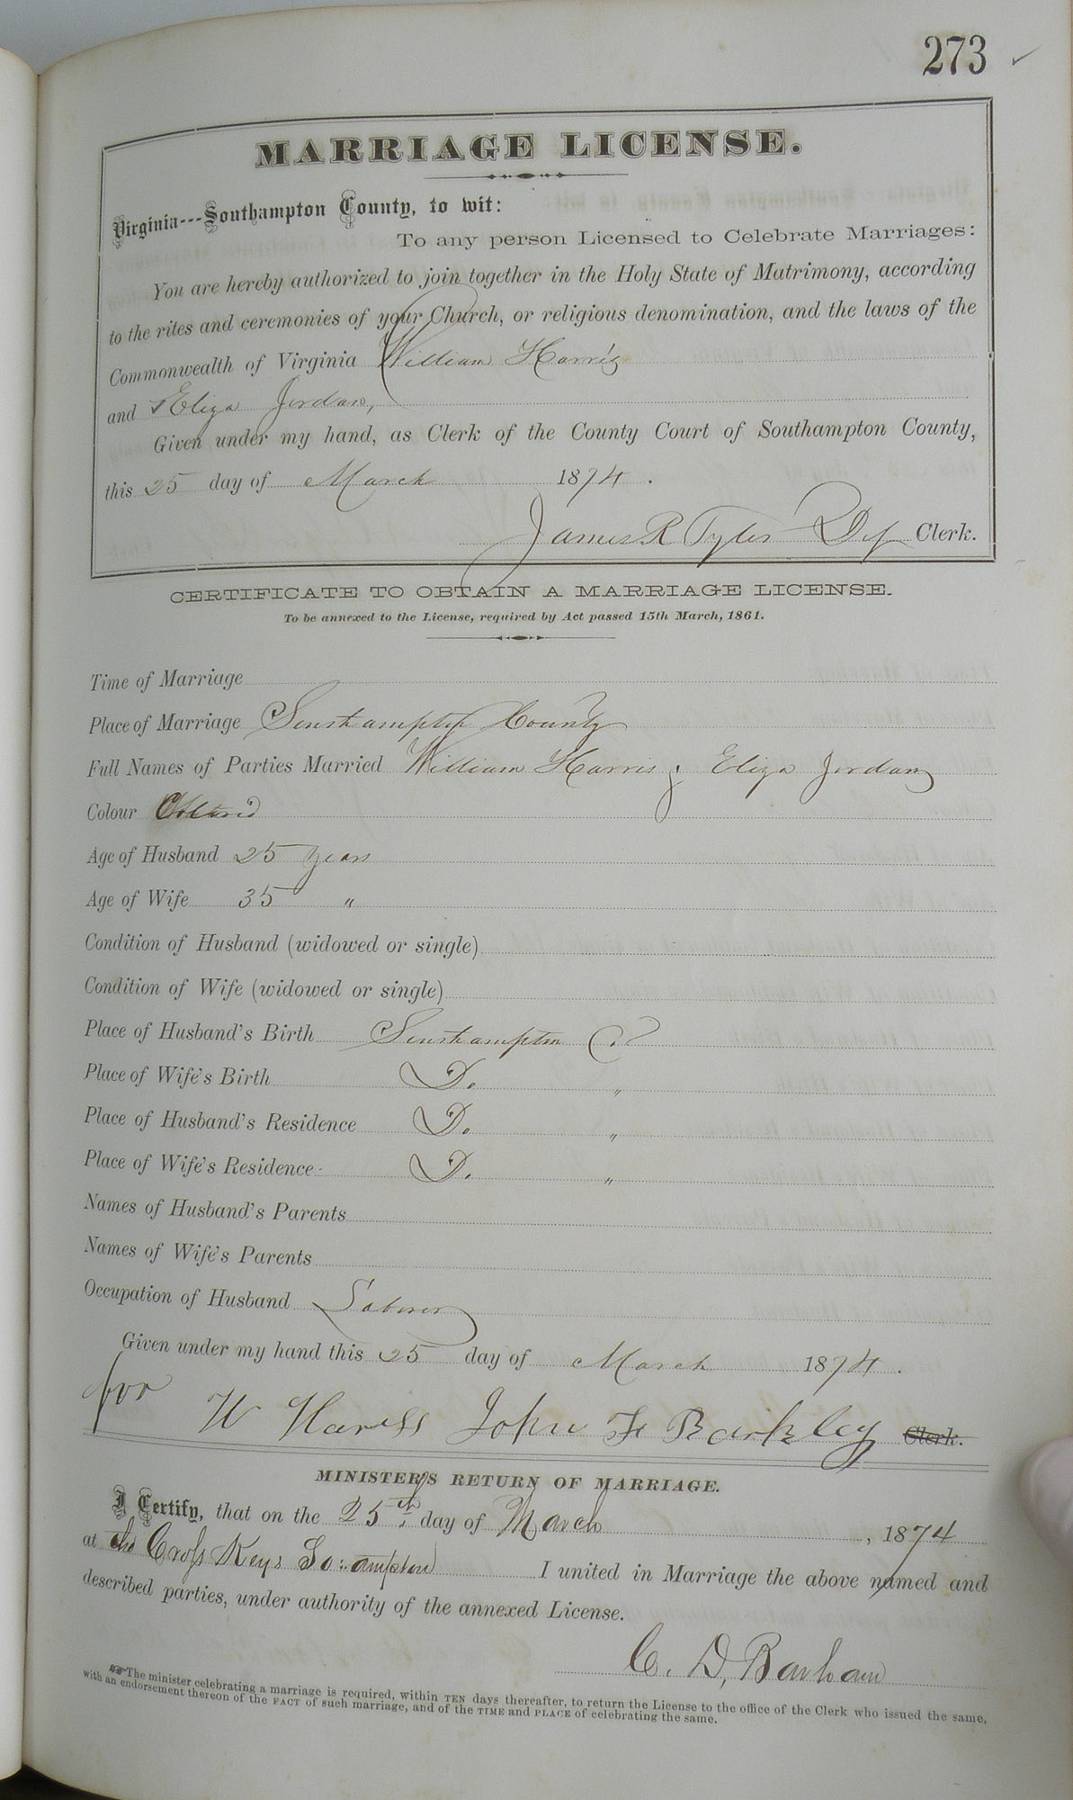 273
MARRIAGE LICENSE.
Virginia---Southampton County, to wit:
To any person Licensed to Celebrate Marriages:
You are hereby authorized to join together in the Holy State of Matrimony, according
to the rites and ceremonies of your Church, or religious denomination, and the laws of the
Commonwealth of Virginia William Harris
and Eliza Jordan,
Given under my hand, as Clerk of the County Court of Southampton County,
this 25 day of March 1874.
James R Tyler Dep Clerk.
CERTIFICATE TO OBTAIN A MARRIAGE LICENSE.
To be annexed to the License, required by Act passed 15th March, 1861.
Time of Marriage
Place of Marriage Southampton County
Full Names of Parties Married William Harris; Eliza Jordan
Colour Colored
Age of Husband 25 years
Age of Wife 35 "
Condition of Husband (widowed or single)
Condition of Wife (widowed or single)
Place of Husband's Birth Southampton Co
Place of Wife's Birth Do "
Place of Husband's Residence Do "
Place of Wife's Residence Do "
Names of Husband's Parents
Names of Wife's Parents
Occupation of Husband Laborer
Given under my hand this 25 day of March 1874.
for W Haress John F Barkley Clerk.
MINISTER'S RETURN OF MARRIAGE.
I Certify, that on the 25th day of March, 1874
at Cross Keys So:ampton I united in Marriage the above named and
described parties, under authority of the annexed License.
C. D. Barham
The minister celebrating a marriage is required, within TEN days thereafter, to return the License to the office of the Clerk who issued the same,
with an endorsement thereon of the FACT of such marriage, and of the TIME and PLACE of celebrating the same.